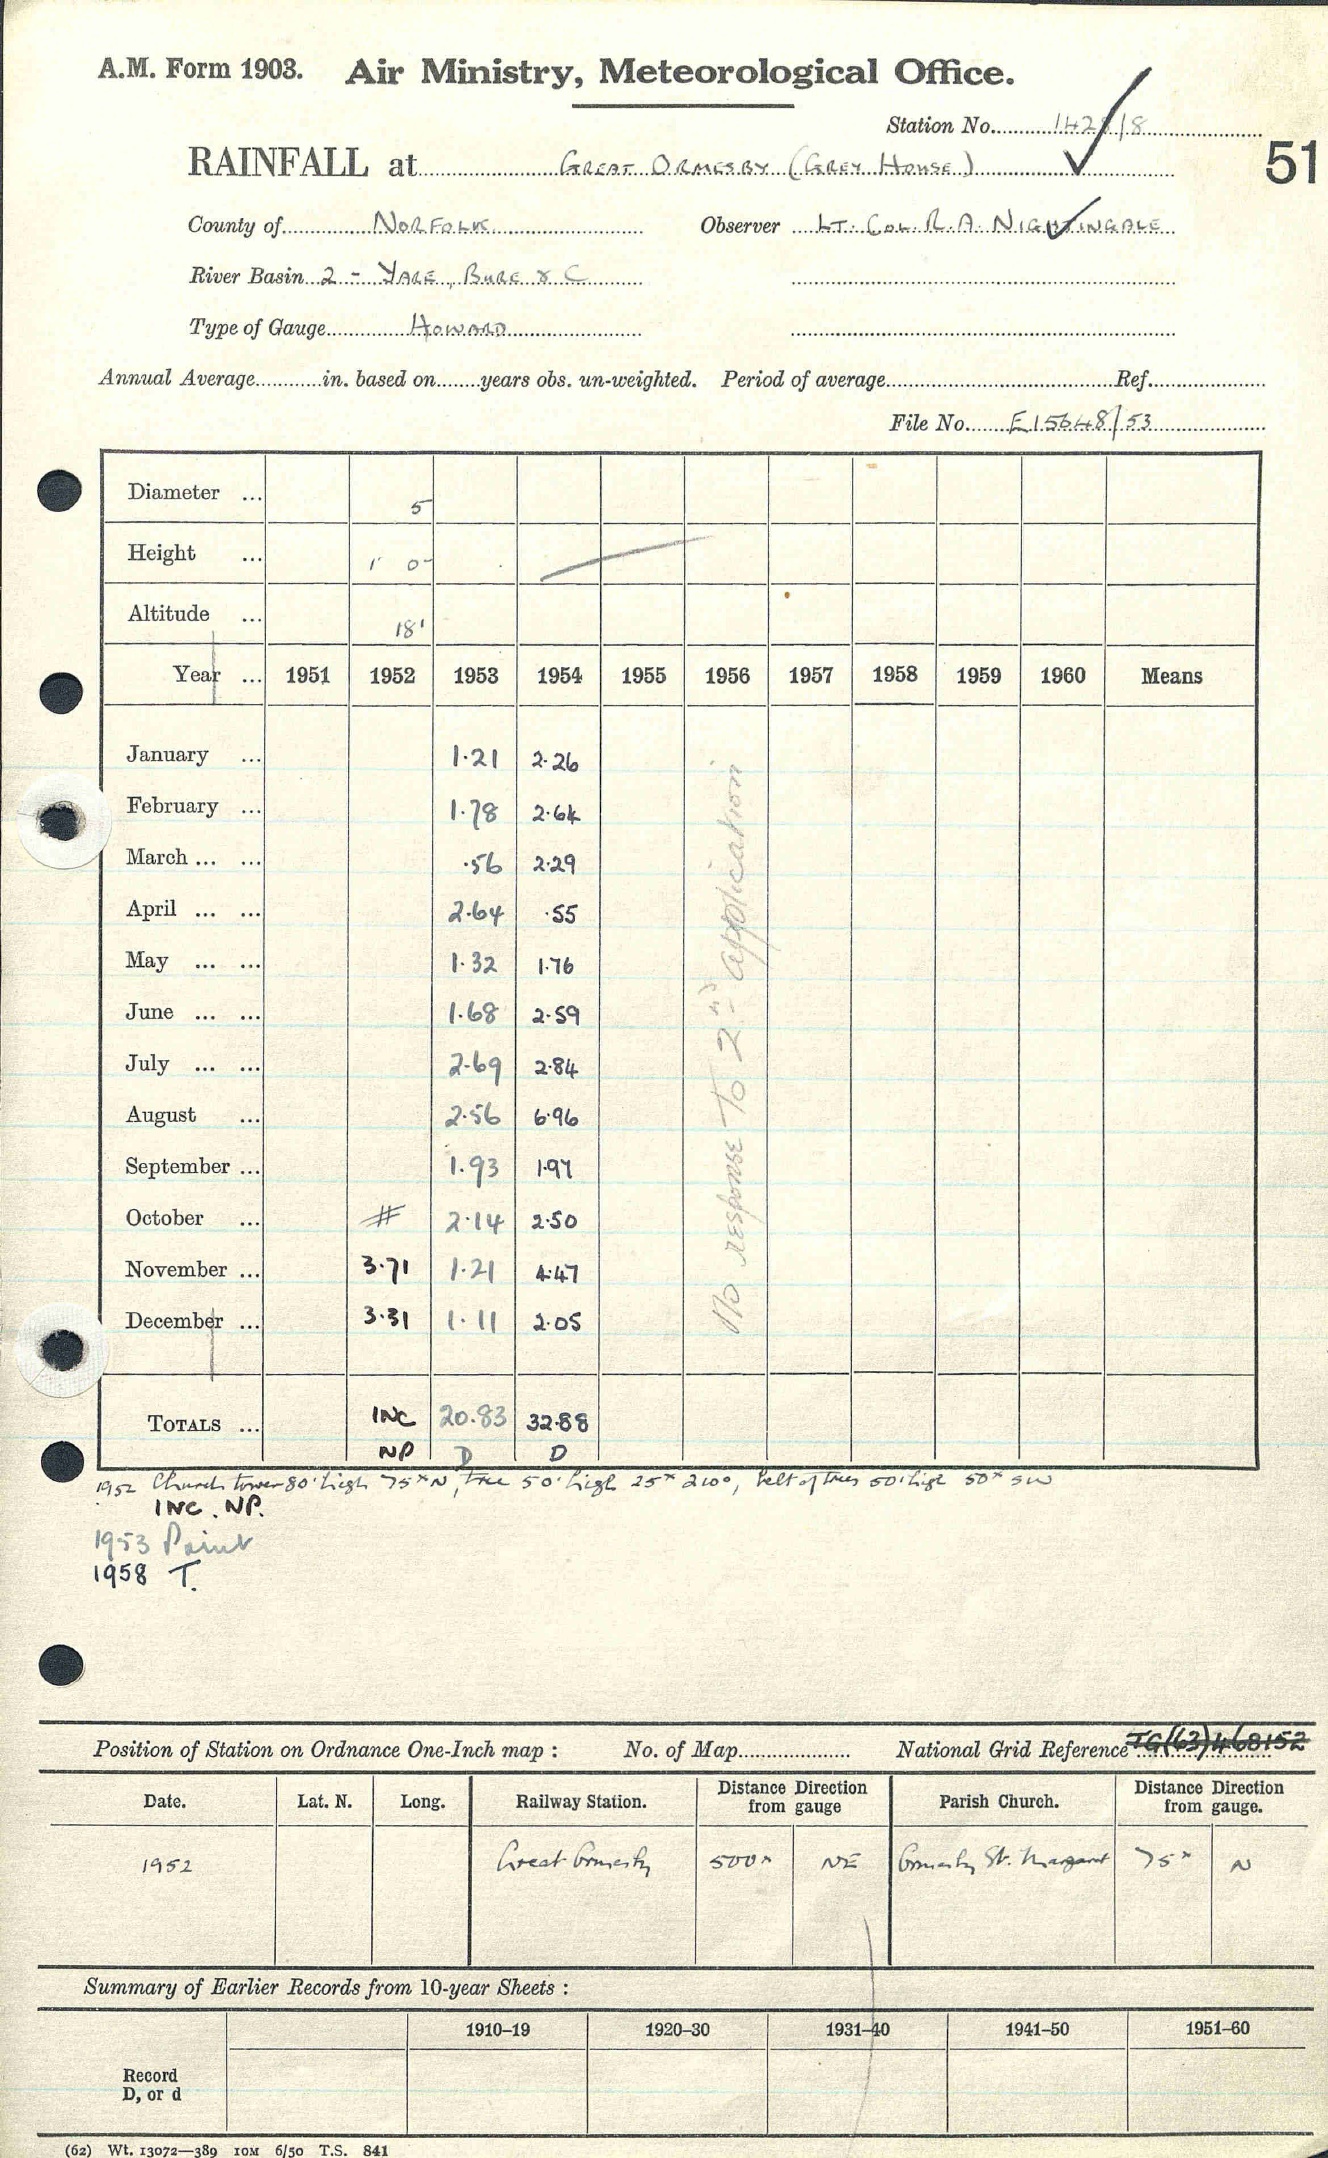 A.M. Form 1903. Air Ministry, Meteorological Office.
Station No. 1428/8
51
RAINFALL at GREAT ORMESBY (GREY HOUSE)
County of NORFOLK Observer LT. COL. R. A. NIGHTINGALE
River Basin 2 - YARE, BURE & C
Type of Gauge HOWARD
Annual Average in. based on years obs. un-weighted. Period of average Ref.
File No. E15648/53
Diameter ... 5
Height ... 1' 0"
Altitude ... 18'
Year ... 1951 1952 1953 1954 1955 1956 1957 1958 1959 1960 Means
January ... 1.21 2.26
February ... 1.78 2.64
March ... ... .56 2.29
April ... ... 2.64 .55
May ... ... 1.32 1.76
June ... ... 1.68 2.59
July ... ... 2.69 2.84
August ... 2.56 6.96
September ... 1.93 1.97
October ... # 2.14 2.50
November ... 3.71 1.21 4.47
December ... 3.31 1.11 2.05
No response to 2nd application
TOTALS ... INC 20.83 32.88
NP D D
1952 Church tower 80' high 75x N, tree 50' high 25x 210°, belt of trees 50' high 50x SW
INC. NP.
1953 Point
1958 T.
Position of Station on Ordnance One-Inch map : No. of Map National Grid Reference TG(63)468152
Date. Lat. N. Long. Railway Station. Distance Direction from gauge Parish Church. Distance Direction from gauge.
1952 Great Ormesby 500x NE Ormesby St. Margaret 75x N
Summary of Earlier Records from 10-year Sheets :
1910–19 1920–30 1931–40 1941–50 1951–60
Record
D, or d
(62) Wt. 13072—389 10M 6/50 T.S. 841